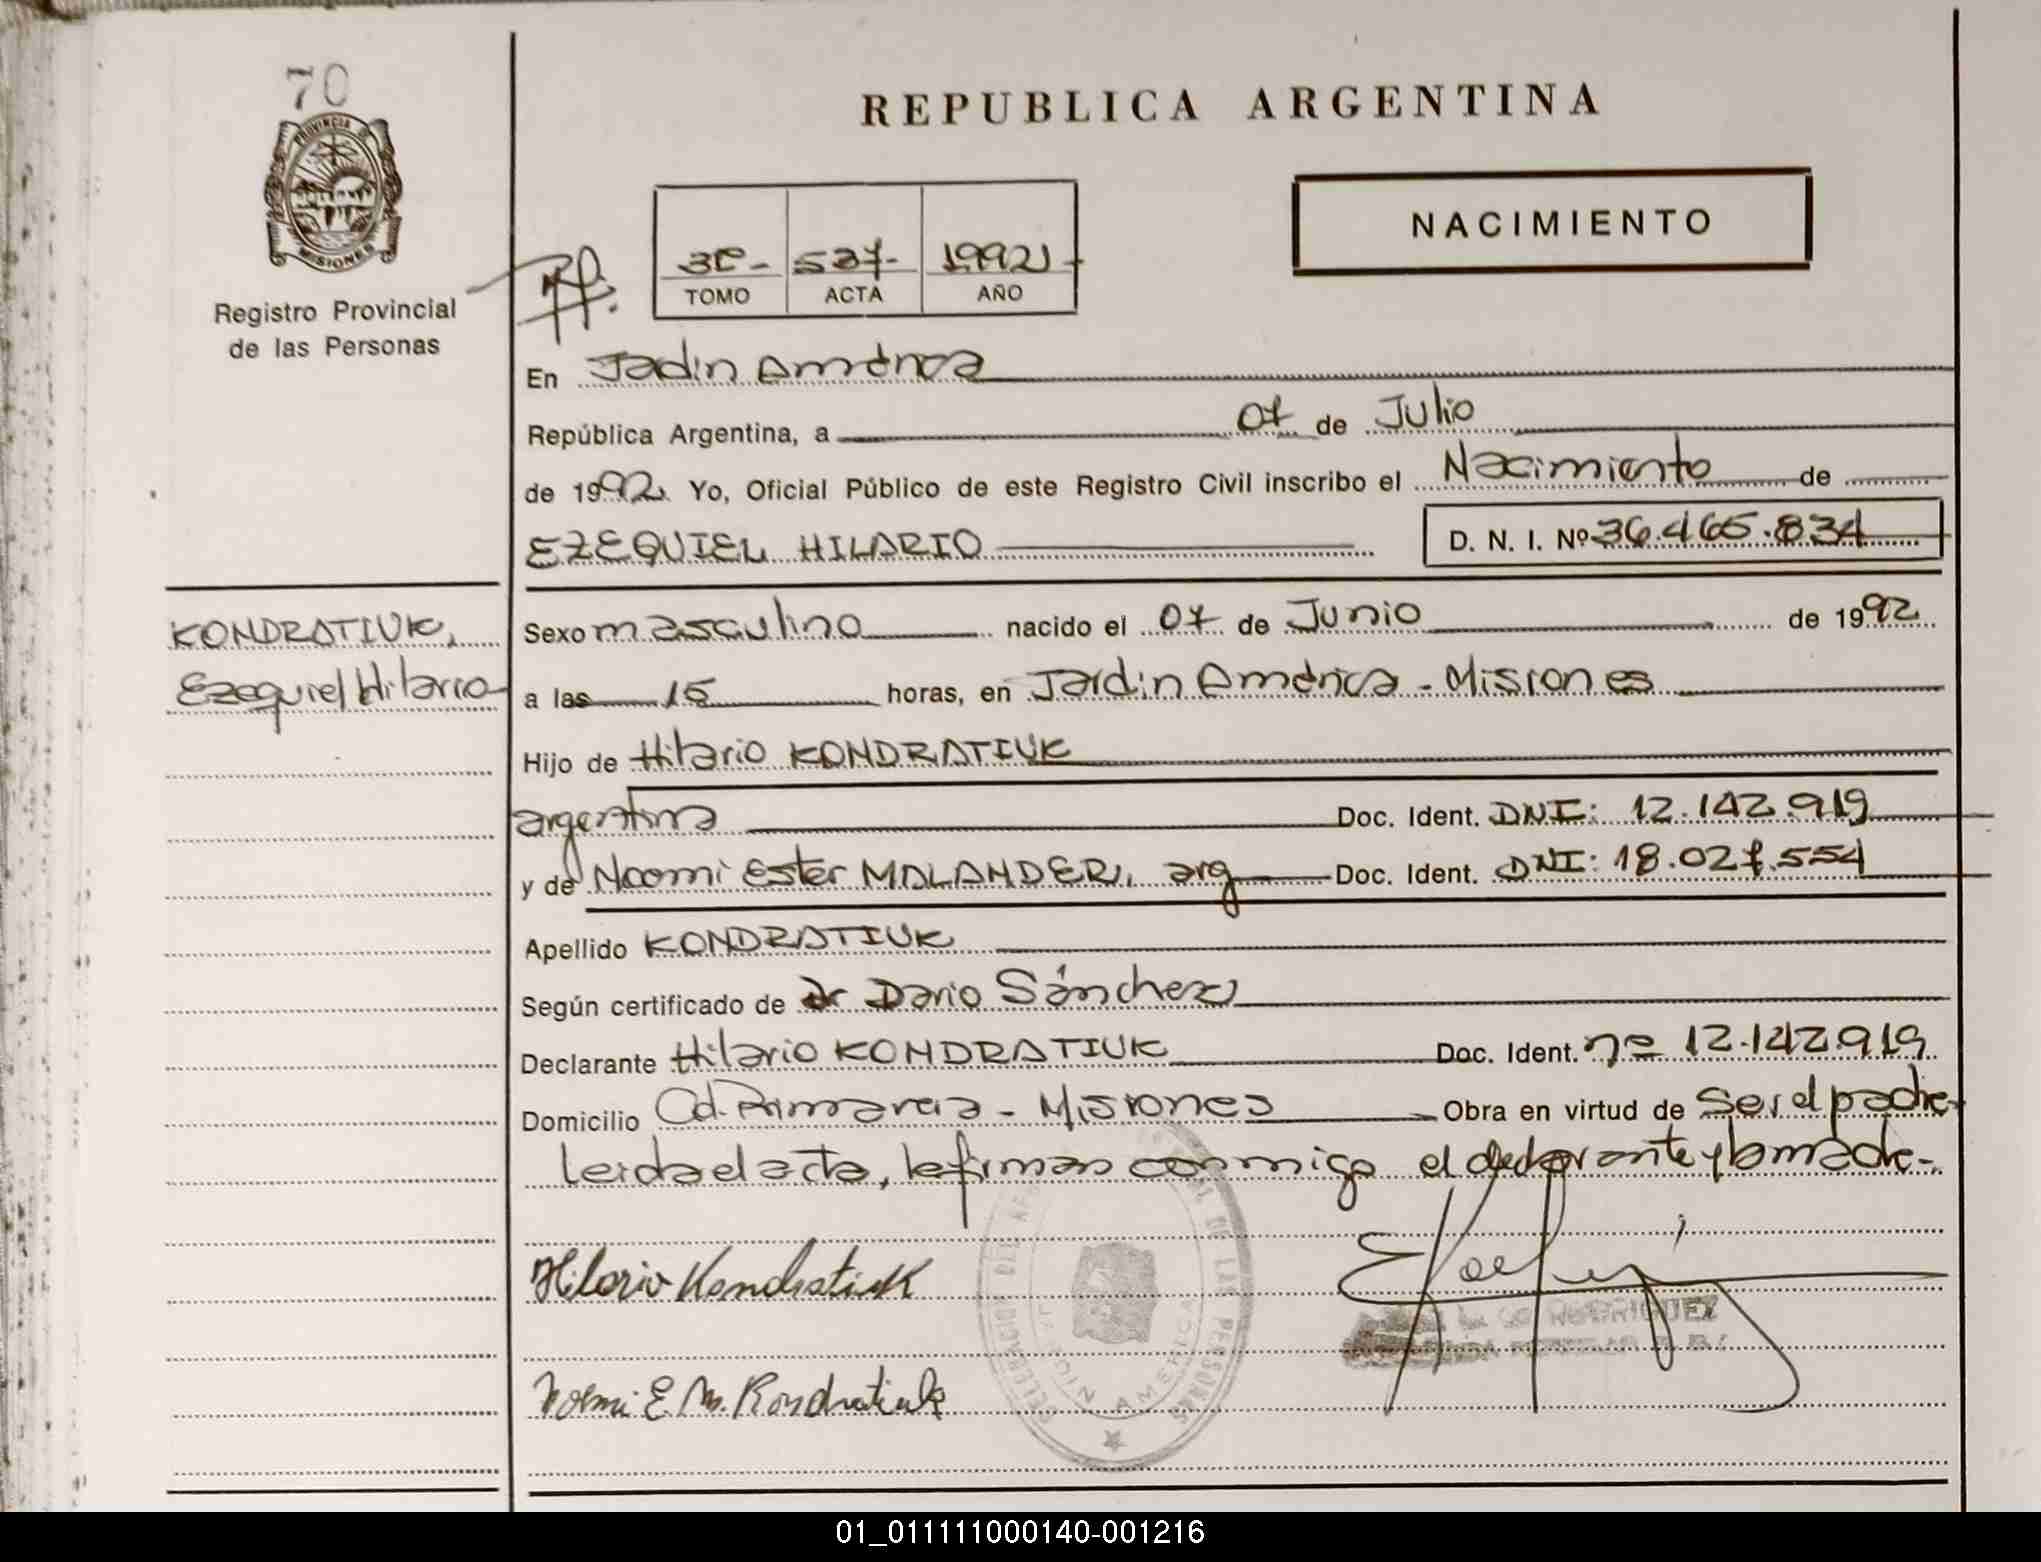 70
PROVINCIA DE
MISIONES
Registro Provincial
de las Personas
REPUBLICA ARGENTINA
NACIMIENTO
3C - 527- 1992
TOMO ACTA AÑO
En Jadin América
República Argentina, a 07 de Julio
de 1992. Yo, Oficial Público de este Registro Civil inscribo el Nacimiento de
EZEQUIEL HILARIO D. N. I. Nº 36.465.834
KONDRATIUK,
Ezequiel Hilario
Sexo masculino nacido el 07 de Junio de 1992
a las 15 horas, en Jardin América - Misiones
Hijo de Hilario KONDRATIUK
argentina Doc. Ident. DNI: 12.142.919
y de Noemi Ester MALANDER, arg Doc. Ident. DNI: 18.027.554
Apellido KONDRATIUK
Según certificado de Dr Dario Sánchez
Declarante Hilario KONDRATIUK Doc. Ident. nº 12.142.919
Domicilio Cd. Primavera - Misiones Obra en virtud de Ser el padre-
Leida el acta, la firman conmigo el declarante y la madre-
Hilario Kondratiuk
RODRIGUEZ
Noemi E. M. Kondratiuk
DE LAS PERSONAS
JARDIN AMERICA
01_011111000140-001216